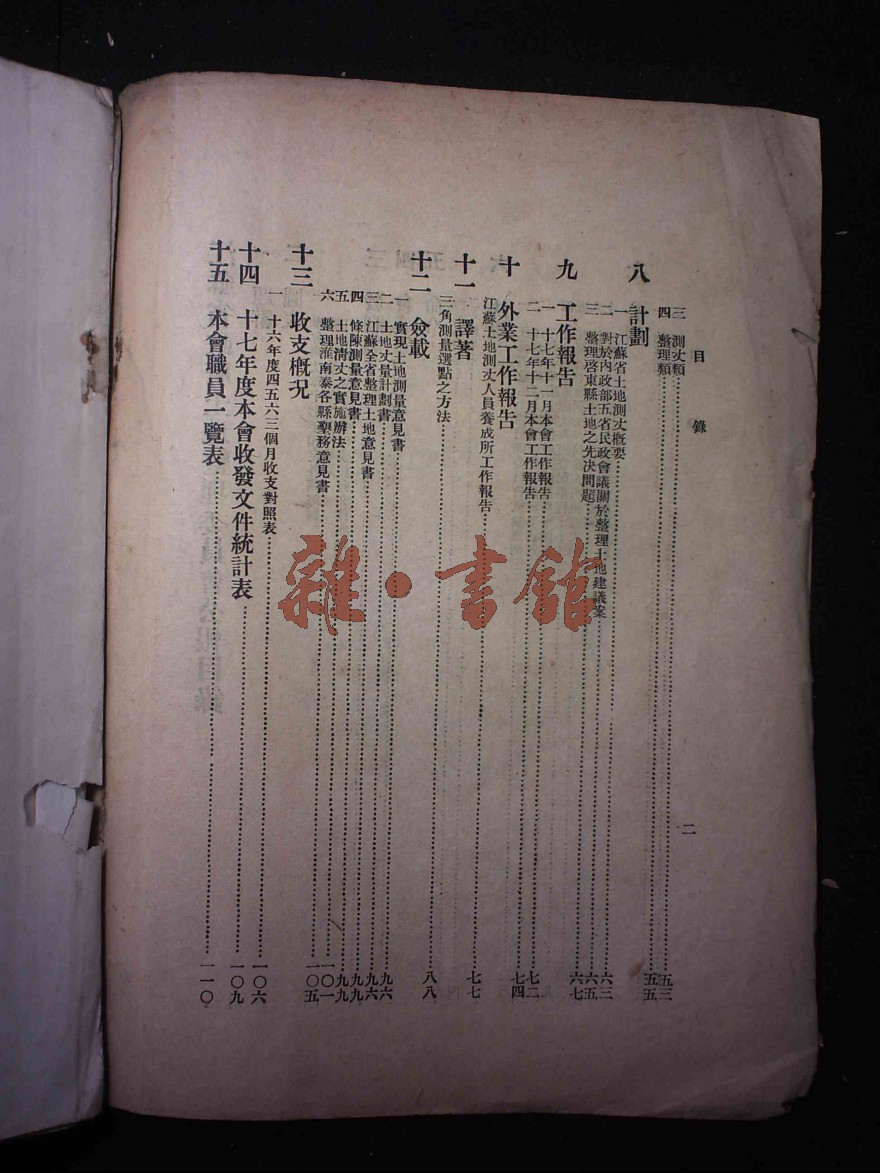 目錄 二
三 測丈類 五三
四 整理類 五五
八 計劃
一 江蘇省土地測丈概要 六三
二 對於內政部五省民政會議關於整理土地建議案 六五
三 整理啓東縣土地之先決問題 六七
九 工作報告
一 十七年十一月本會工作報告 七二
二 十七年十二月本會工作報告 七四
十 外業工作報告
江蘇土地測丈人員養成所工作報告 七七
十一 譯著
三角測量選點之方法 八八
十二 僉載
一 實現土地測量意見書 九六
二 土地丈量計劃書 九六
三 江蘇全省整理土地意見書 九九
四 條陳測量意見書 九九
五 土地清丈之實施辦法 一〇一
六 整理淮南泰各縣墾務意見書 一〇五
十三 收支概況
一 十六年度四五六三個月收支對照表 一〇六
十四 十七年度本會收發文件統計表 一〇九
十五 本會職員一覽表 一一〇
雜·書館